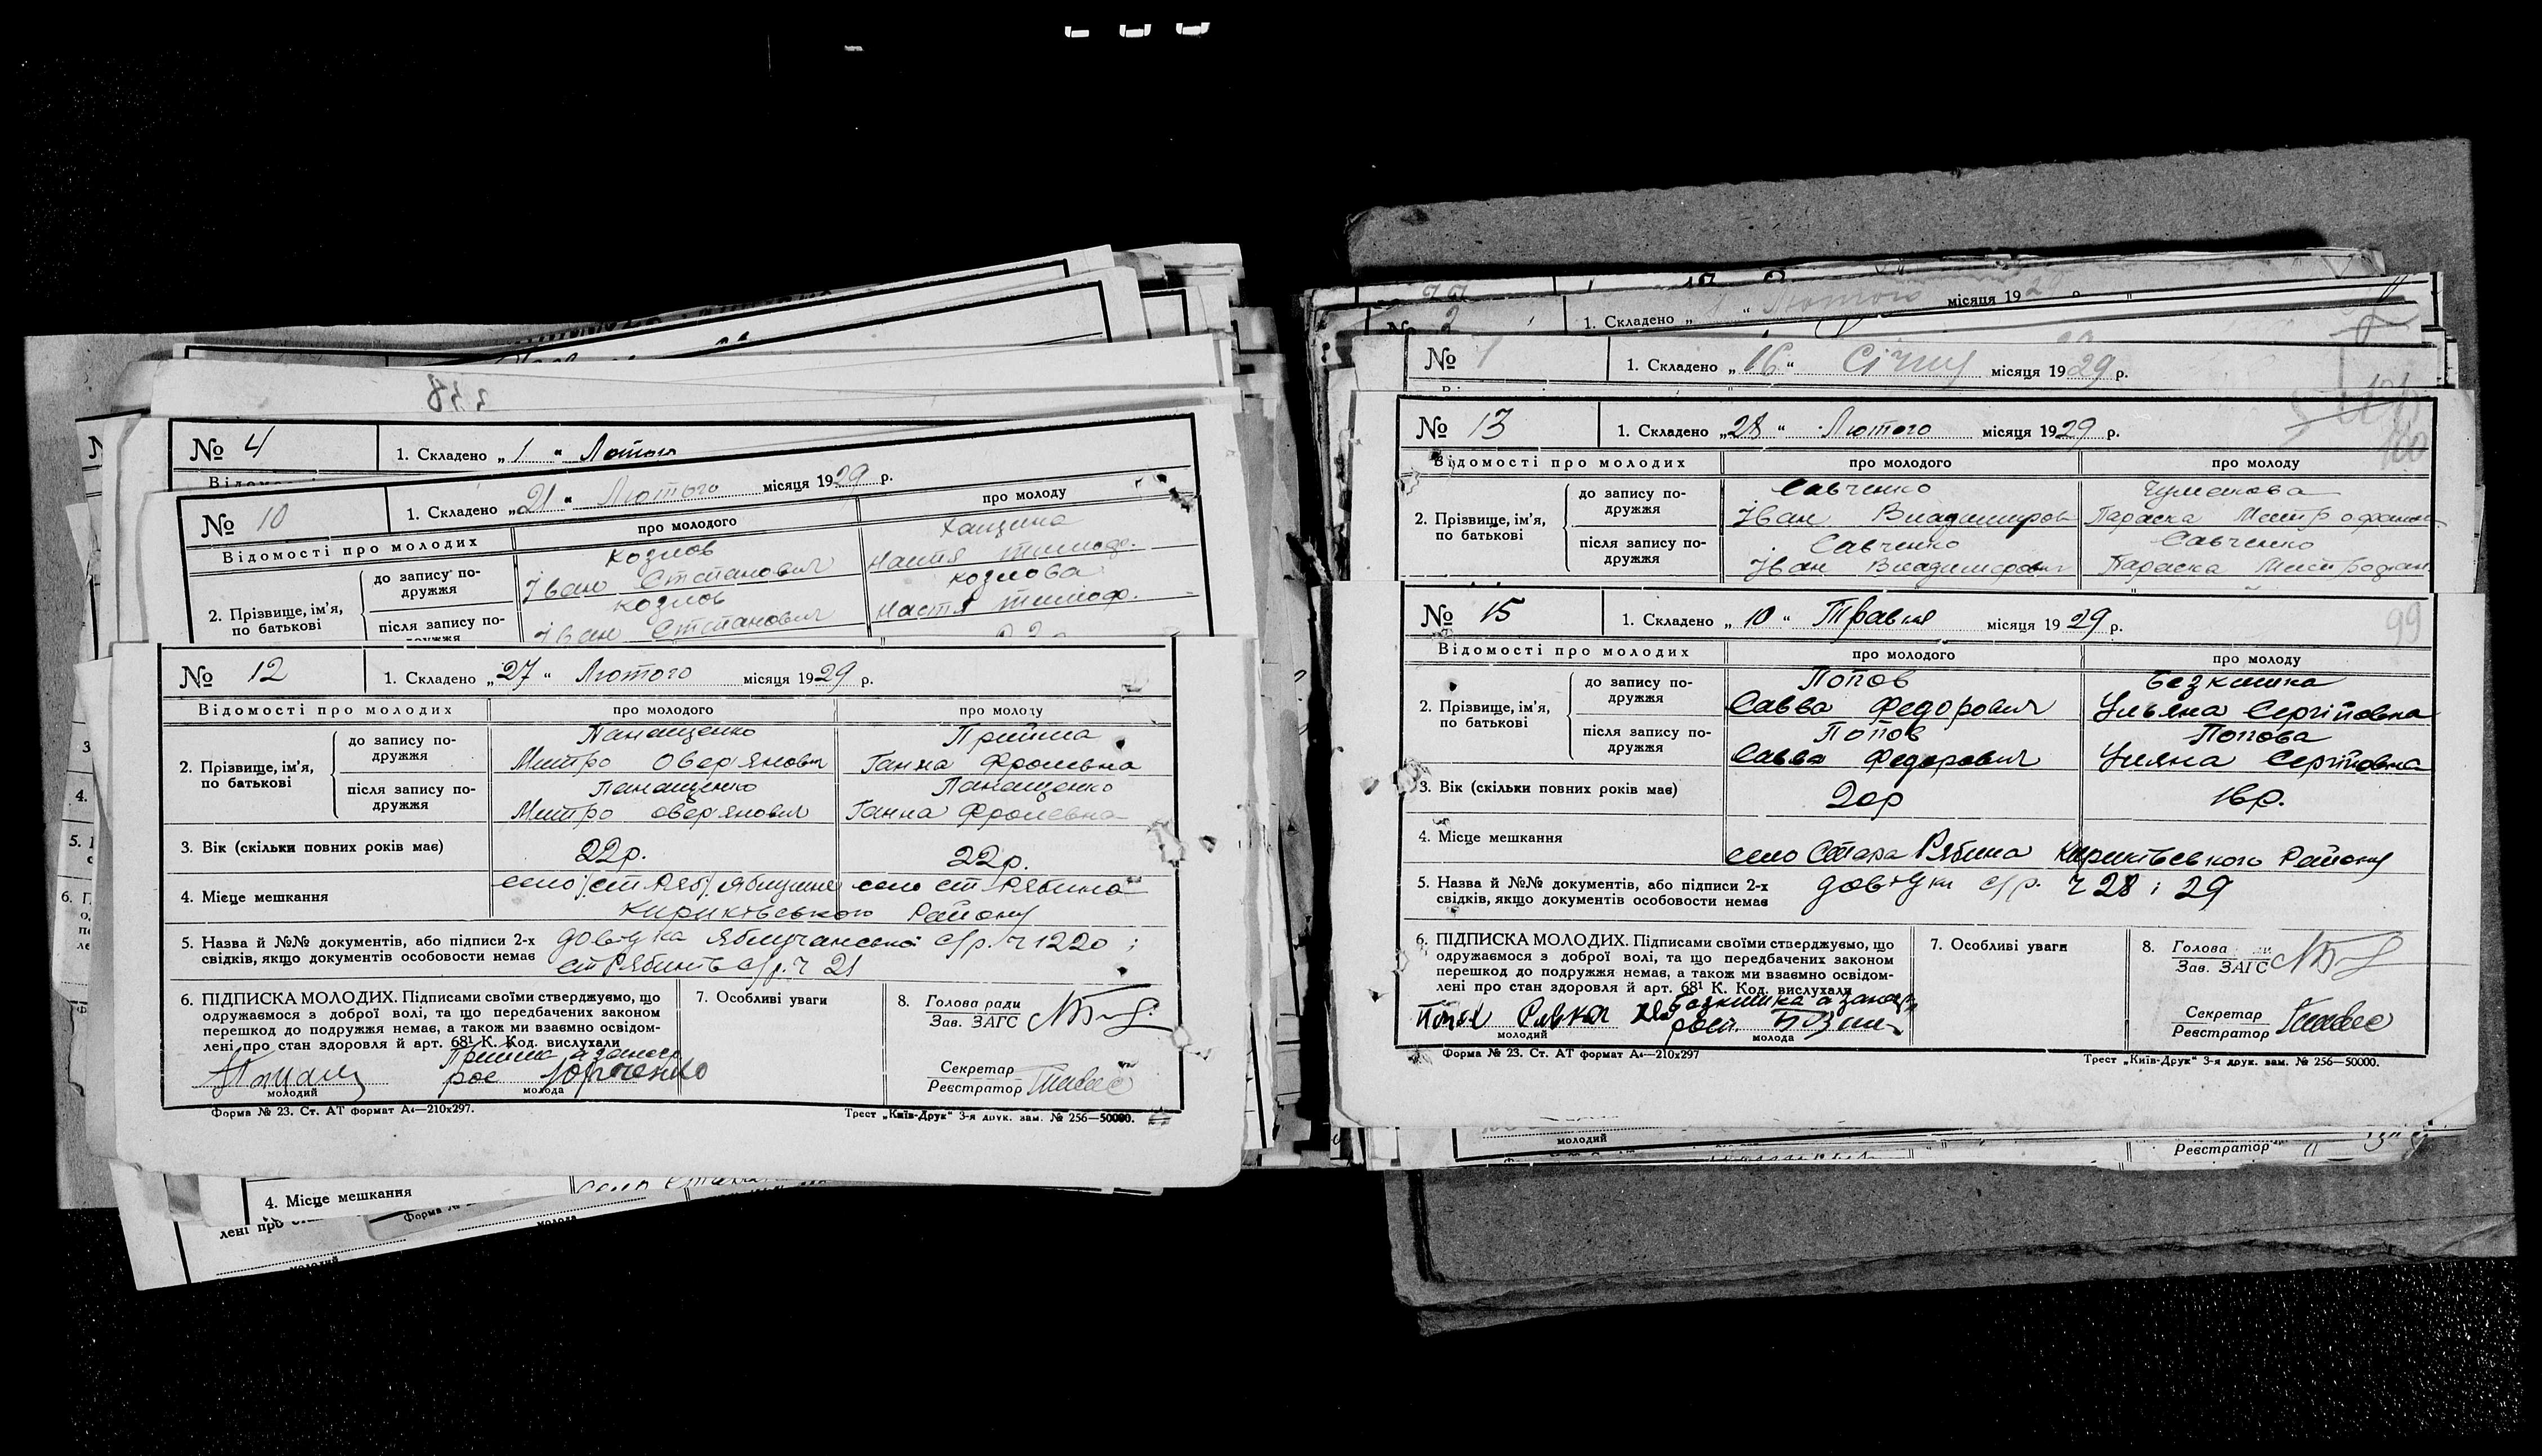 338
№ 4
1. Складено „ 1 “ Лютого
№ 10
1. Складено „ 21 “ Лютого місяця 1929 р.
Відомості про молодих
про молодого
про молоду
2. Прізвище, ім’я, по батькові
до запису по-
дружжя
Козлов
Іван Степанович
Хащина
Настя Тимоф.
після запису по-
Козлов
Іван Степанович
Козлова
Настя Тимоф.
№ 12
1. Складено „ 27 “ Лютого місяця 1929 р.
Відомості про молодих
про молодого
про молоду
2. Прізвище, ім’я,
по батькові
до запису по-
дружжя
Панащенко
Митро Овер’янович
Прийма
Ганна Фролевна
після запису по-
дружжя
Панащенко
Митро Овер’янович
Панащенко
Ганна Фролевна
3. Вік (скільки повних років має)
22р.
22р.
4. Місце мешкання
село
село ст. Рябина
Кириківського Району
5. Назва й №№ документів, або підписи 2-х
свідків, якщо документів особовости немає
Яблучанської с/р. ч 1220 ;
с/р. ч 21
6. ПІДПИСКА МОЛОДИХ. Підписами своїми стверджуємо, що
одружаємося з доброї волі, та що передбачених законом
перешкод до подружжя немає, а також ми взаємно освідом-
лені про стан здоровля й арт. 68¹ К. Код. вислухали
молодий
молода
7. Особливі уваги
8. Голова ради
Зав. ЗАГС
Секретар
Реєстратор
Форма № 23. Ст. АТ формат А₄—210х297.
Трест „Київ-Друк“ 3-я друк. зам. № 256—50000.
4. Місце мешкання
молода
№ 2
1. Складено „ “ Лютого місяця 1929
№ 1
1. Складено „ 16 “ Січня місяця 1929 р.
№ 13
1. Складено „ 28 “ Лютого місяця 1929 р.
100
Відомості про молодих
про молодого
про молоду
2. Прізвище, ім’я,
по батькові
до запису по-
дружжя
Савченко
Іван Владимиров
Чуменова
Параска Митрофанов
після запису по-
дружжя
Савченко
Іван Владимирович
Савченко
Параска Митрофан
№ 15
1. Складено „ 10 “ Травня місяця 1929 р.
99
Відомості про молодих
про молодого
про молоду
2. Прізвище, ім’я,
по батькові
до запису по-
дружжя
Попов
Савва Федорович
Безкишка
Ульяна Сергійовна
після запису по-
дружжя
Попов
Савва Федорович
Попова
Уляна Сергійовна
3. Вік (скільки повних років має)
20р
18р.
4. Місце мешкання
село Стара Рябина Кириківського Району
5. Назва й №№ документів, або підписи 2-х
свідків, якщо документів особовости немає
довідки с/р. ч 28 і 29
6. ПІДПИСКА МОЛОДИХ. Підписами своїми стверджуємо, що
одружаємося з доброї волі, та що передбачених законом
перешкод до подружжя немає, а також ми взаємно освідом-
лені про стан здоровля й арт. 68¹ К. Код. вислухали
молодий
молода
7. Особливі уваги
8. Голова
Зав. ЗАГС
Секретар
Реєстратор
Форма № 23. Ст. АТ формат А₄—210х297
Трест „Київ-Друк“ 3-я друк. зам. № 256—50000.
молодий
Реєстратор